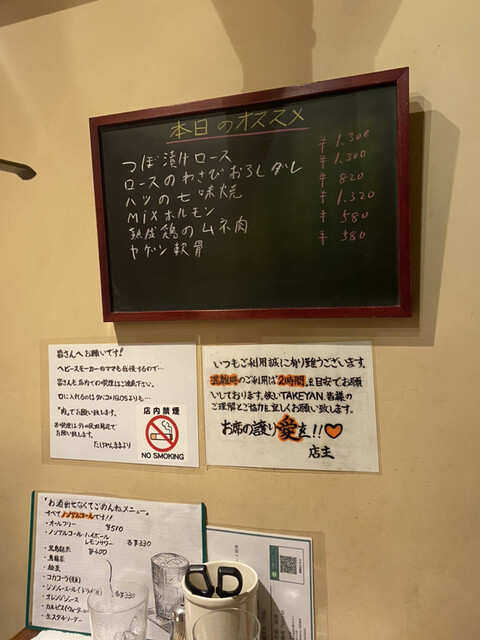 本日のオススメ
つぼ漬けロース ¥1.300
ロースのわさびおろしダレ ¥1.300
ハツの七味焼 ¥820
Mixホルモン ¥1.320
熟成鶏のムネ肉 ¥580
ヤゲン軟骨 ¥580
皆さんへお願いです!
ヘビースモーカーのママも我慢するので…
皆さんも店内での喫煙はご遠慮下さい。
口に入れるのはタバコよりGOSよりも…
"肉"でお願い致します。
お願い致します。
たけやんままより
店内禁煙
NO SMOKING
いつもご利用誠に有り難うございます。
混雑時のご利用は"2時間"を目安でお願
いしております。狭いTAKEYAN.皆様の
ご理解とご協力を宜しくお願い致します。
お席の譲り愛を!!
店主
「お酒出せなくてごめんねメニュー」
すべてノンアルコールです!!
・オールフリー ¥510
・ノンアルコールハイボール
レモンサワー 各¥330
・黒烏龍茶 ¥400
・烏龍茶
・緑茶
・コカコーラ(瓶)
・ジンジャーエール(ドライ) 各¥330
・オレンジジュース
・カルピス(ウォーター
・クリスタルソーダー